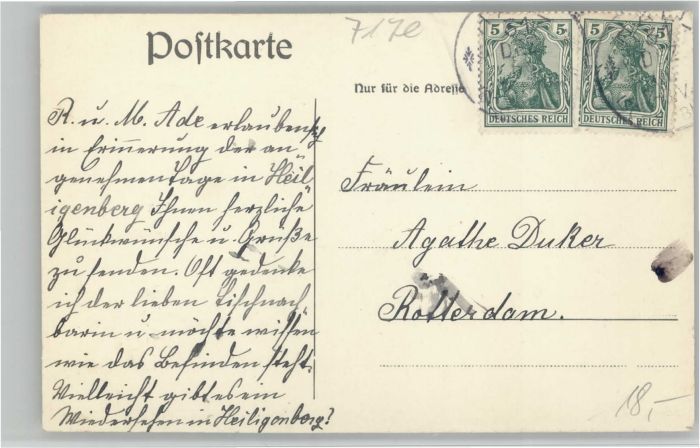 Postkarte
717e
5 5
5 5
DEUTSCHES REICH
DEUTSCHES REICH
Nur für die Adresse
R. u. M. Ade erlauben sich
in Erinnerung der an-
genehmen Tage in Heil-
igenberg Ihnen herzliche
Glückwünsche u. Grüße
zu senden. Oft gedenke
ich der lieben Tischnach
barin u. möchte wissen
wie das Befinden steht.
Vielleicht gibt es ein
Wiedersehen in Heiligenberg?
Fräulein
Agathe Duker
Rotterdam.
18,-